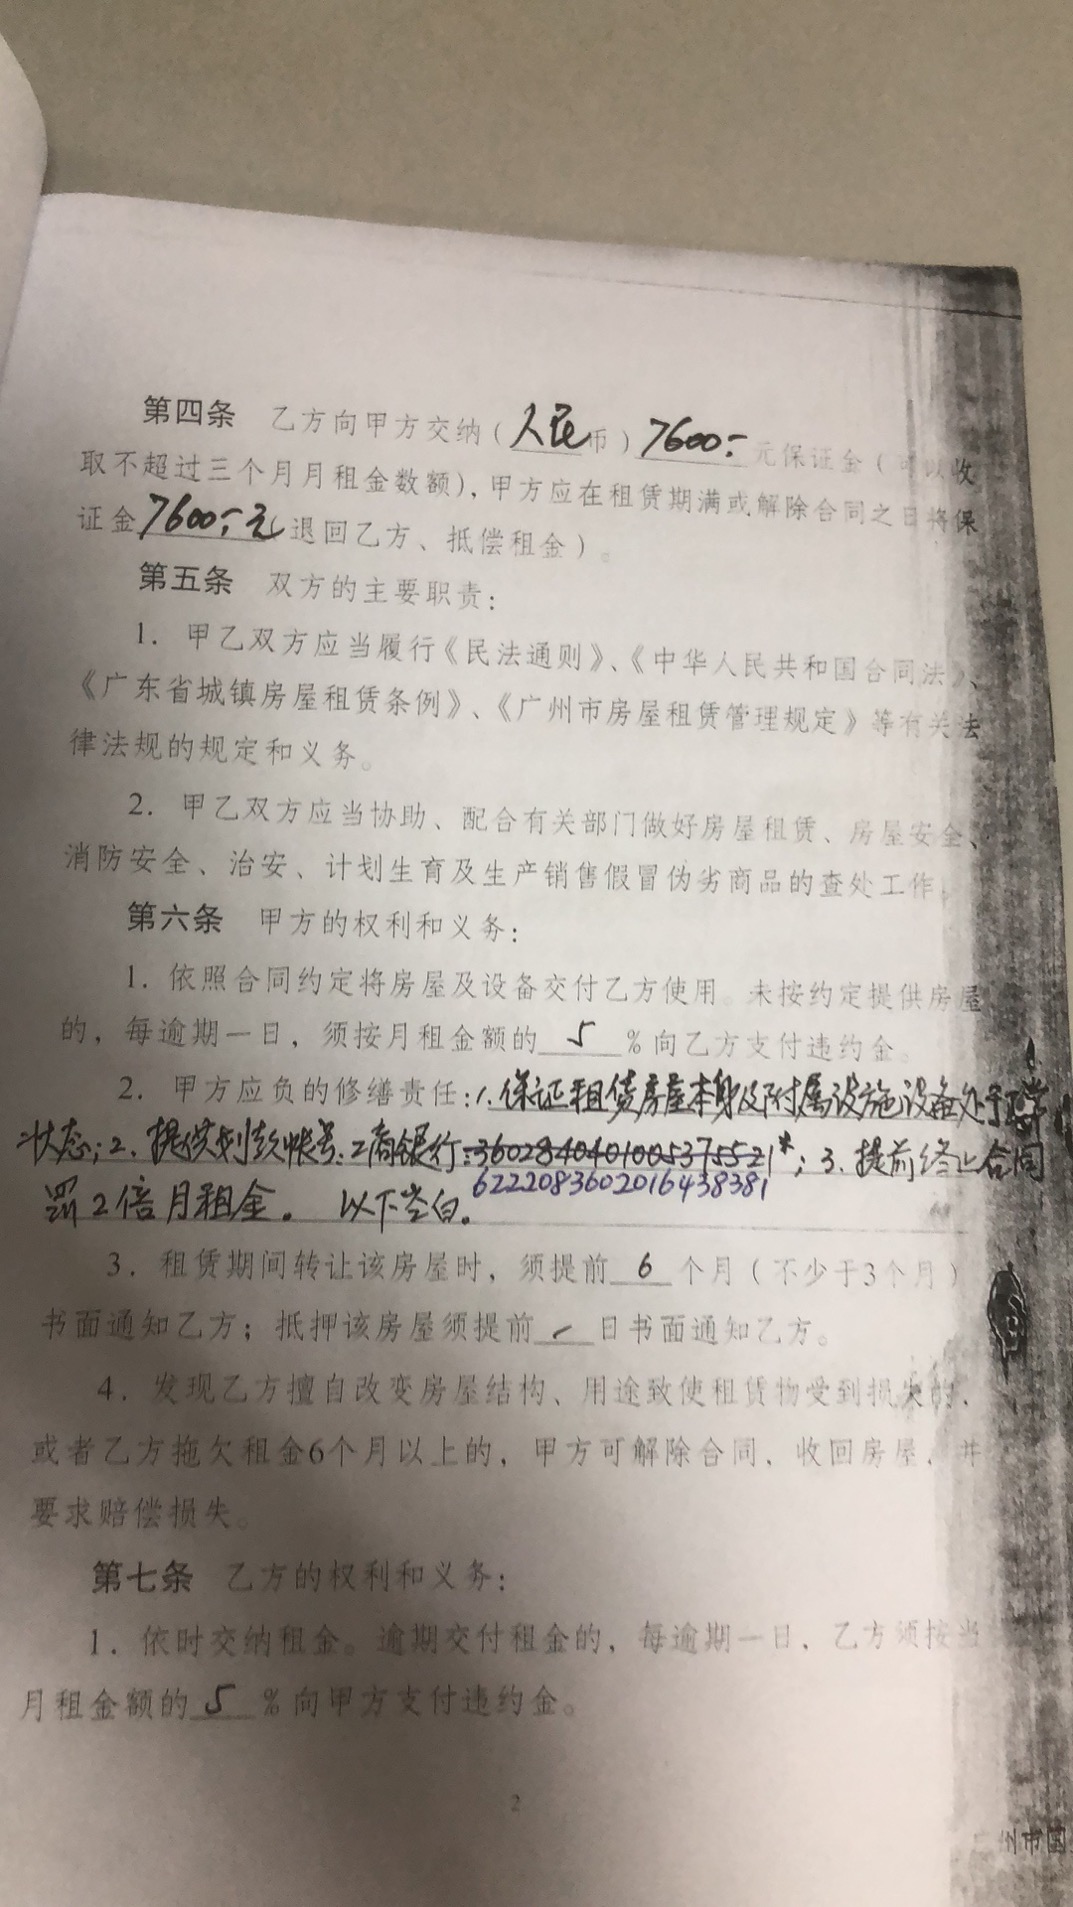 第四条 乙方向甲方交纳(人民币)7600:元保证金(可以收
取不超过三个月月租金数额),甲方应在租赁期满或解除合同之日将保
证金7600:元退回乙方、抵偿租金)。
第五条 双方的主要职责:
1. 甲乙双方应当履行《民法通则》、《中华人民共和国合同法》、
《广东省城镇房屋租赁条例》、《广州市房屋租赁管理规定》等有关法
律法规的规定和义务。
2. 甲乙双方应当协助、配合有关部门做好房屋租赁、房屋安全、
消防安全、治安、计划生育及生产销售假冒伪劣商品的查处工作。
第六条 甲方的权利和义务:
1. 依照合同约定将房屋及设备交付乙方使用。未按约定提供房屋
的,每逾期一日,须按月租金额的5%向乙方支付违约金。
2. 甲方应负的修缮责任:1.保证租赁房屋本身及附属设施设备处于正常
状态;2.提供划款帐号:工商银行:3602840401005375521*;3.提前终止合同
6222083602016438381
罚2倍月租金。 以下空白。
3. 租赁期间转让该房屋时,须提前6个月(不少于3个月)
书面通知乙方;抵押该房屋须提前/日书面通知乙方。
4. 发现乙方擅自改变房屋结构、用途致使租赁物受到损失的,
或者乙方拖欠租金6个月以上的,甲方可解除合同、收回房屋,并
要求赔偿损失。
第七条 乙方的权利和义务:
1. 依时交纳租金。逾期交付租金的,每逾期一日,乙方须按当
月租金额的5%向甲方支付违约金。
2
州市国